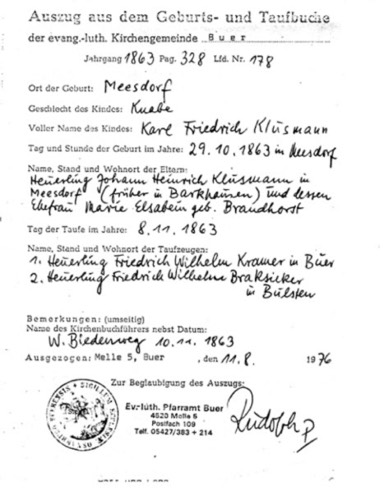 Auszug aus dem Geburts- und Taufbuche
der evang.-luth. Kirchengemeinde Buer
Jahrgang 1863 Pag. 328 Lfd. Nr. 178
Ort der Geburt: Meesdorf
Geschlecht des Kindes: Knabe
Voller Name des Kindes: Karl Friedrich Klusmann
Tag und Stunde der Geburt im Jahre: 29.10.1863 in Meesdorf
Name, Stand und Wohnort der Eltern:
Heuerling Johann Heinrich Klusmann in
Meesdorf (früher in Barkhausen) und dessen
Ehefrau Marie Elsabein geb. Brandhorst
Tag der Taufe im Jahre: 8.11.1863
Name, Stand und Wohnort der Taufzeugen:
1. Heuerling Friedrich Wilhelm Kramer in Buer
2. Heuerling Friedrich Wilhelm Braksieker
in Bulsten
Bemerkungen: (umseitig)
Name des Kirchenbuchführers nebst Datum:
W. Biedenweg 10.11.1863
Ausgezogen: Melle 5, Buer , den 11.8. 1976
Zur Beglaubigung des Auszugs:
Ev.-luth. Pfarramt Buer
4520 Melle 5
Postfach 109
Telf. 05427/383 + 214
Rudolph P